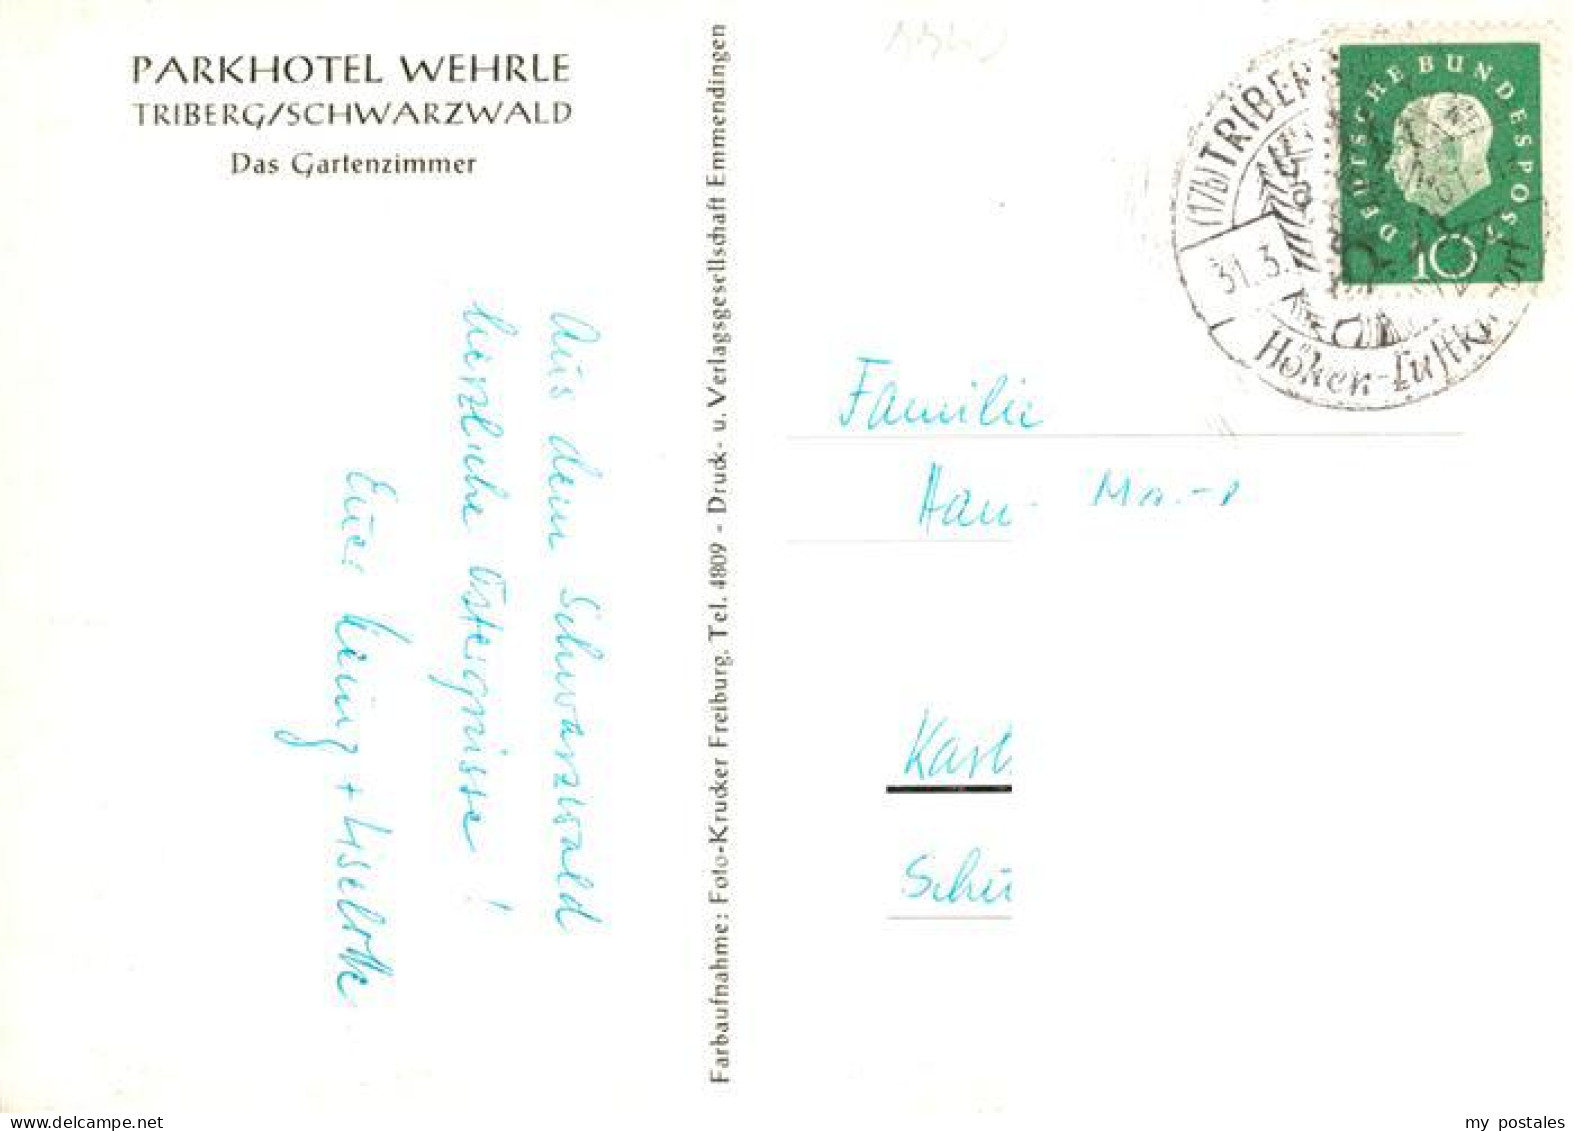 PARKHOTEL WEHRLE
TRIBERG/SCHWARZWALD
Das Gartenzimmer
Aus dem Schwarzwald
herzliche Ostergrüsse!
Euer Heinz + Liselotte
Farbaufnahme: Foto-Krucker Freiburg, Tel. 4809 - Druck- u. Verlagsgesellschaft Emmendingen
(17b) TRIBERG
31.3.
Höhen-Luftkurort
DEUTSCHE BUNDESPOST
10
Familie
my postales